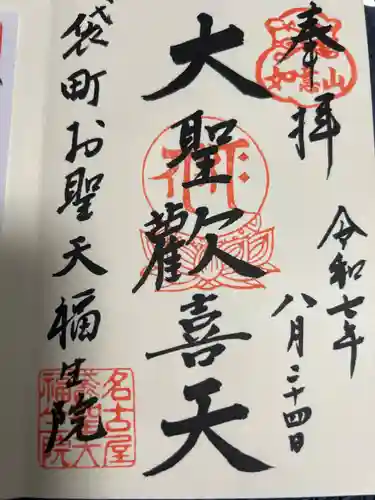 奉拝
如意山
令和七年
八月二十四日
大聖歡喜天
袋町お聖天福生院
名古屋